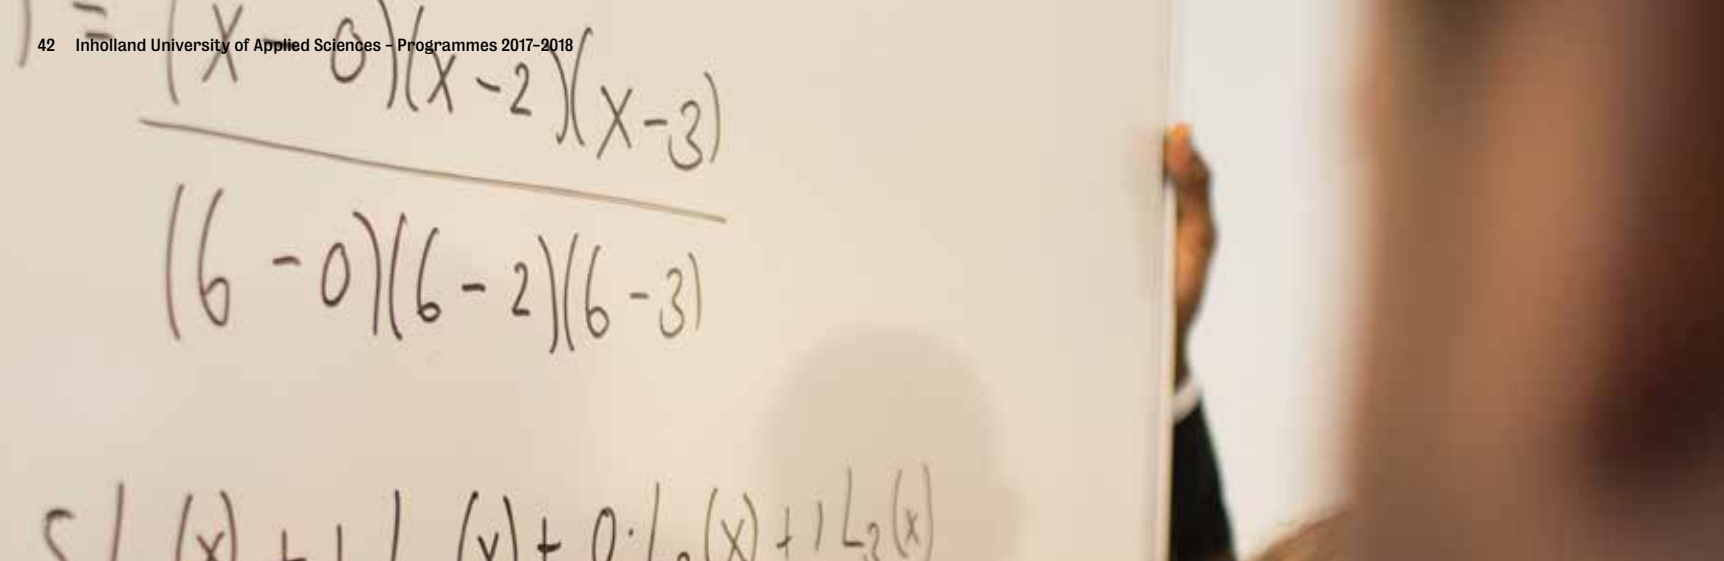 42 Inholland University of Applied Sciences – Programmes 2017–2018
) = (x - 0)(x - 2)(x - 3)
(6 - 0)(6 - 2)(6 - 3)
(x) + 1 (x) + 0 · (x) + 1 L₃(x)